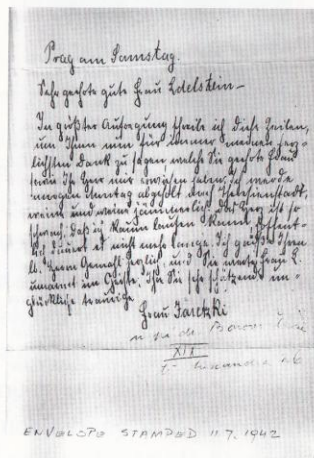 Prag am Samstag.
Sehr geehrte gute Frau Edelstein –
In größter Aufregung schreibe ich diese Zeilen,
um Ihnen nur für immer meinen herz-
lichsten Dank zu sagen welche Sie geehrte Frau
mir erwiesen haben. Ich werde
morgen Montag abgeholt nach Theresienstadt,
weine und weine jämmerlich. Das Herz ist so
schwach, daß ich kaum laufen kann, hoffent-
lich dauert es nicht mehr lange. Ich grüße Ihren
lb. Herrn Gemahl herzlich, und Sie werteste Frau
umarmt im Geiste, Ihre Sie sehr schätzende un-
glückliche traurige
Frau Jaretzki
XII
ENVELOPE STAMPED 11.7.1942